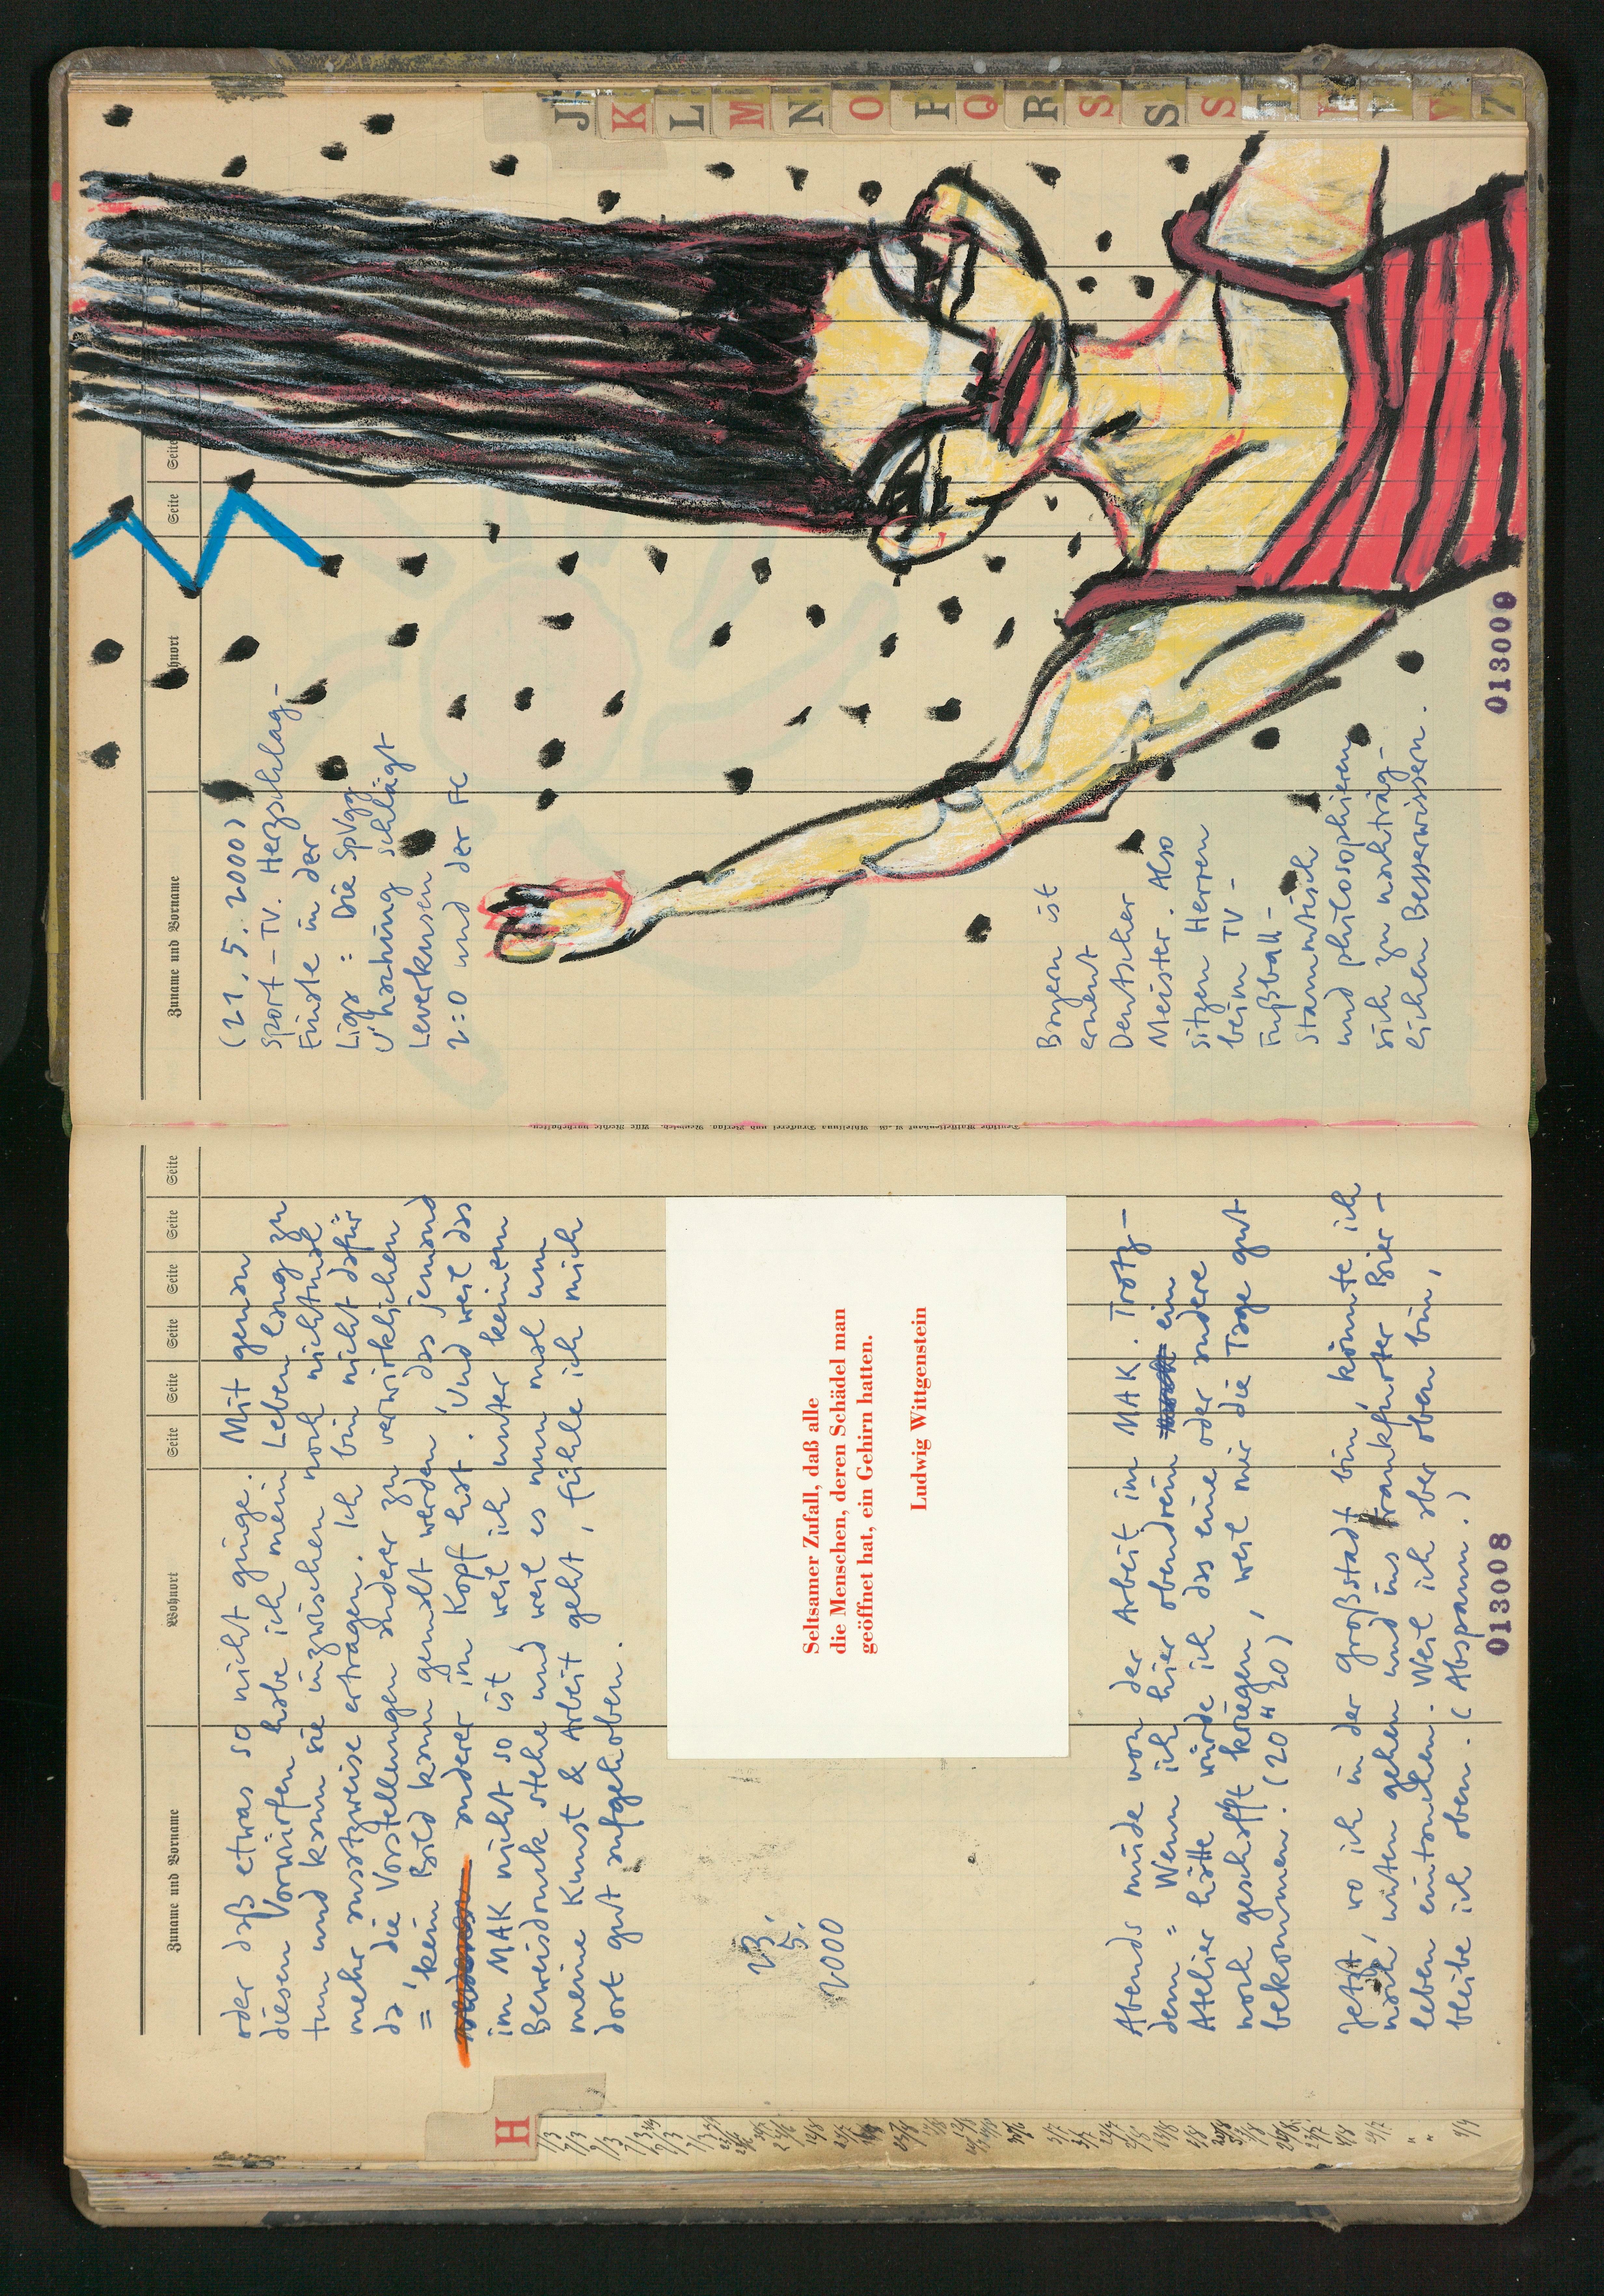 H
Zuname und Vorname
Wohnort
Seite
Seite
Seite
Seite
Seite
Seite
oder daß etwas so nicht ginge. Mit genau
diesen Vorwürfen habe ich mein Leben lang zu
tun und kann sie inzwischen noch nichtmal
mehr ansatzweise ertragen. Ich bin nicht dafür
da, die Vorstellungen anderer zu verwirklichen
= kein Bild kann gemalt werden, das jemand
anderer im Kopf hat. Und weil das
im MAK nicht so ist, weil ich unter keinem
Beweisdruck stehe und weil es nun mal um
meine Kunst & Arbeit geht, fühle ich mich
dort gut aufgehoben.
23.
5.
2000
Seltsamer Zufall, daß alle
die Menschen, deren Schädel man
geöffnet hat, ein Gehirn hatten.
Ludwig Wittgenstein
Abends müde von der Arbeit im MAK. Trotz-
dem = Wenn ich hier obendrein ein
Atelier hätte würde ich das eine oder andere
noch geschafft kriegen, weil mir die Tage gut
bekommen. (20 " 20)
Jetzt, wo ich in der Großstadt bin, könnte ich
nach unten gehen und ins Frankfurter Bier-
leben eintauchen. Weil ich aber oben bin,
bleibe ich oben. (Abspann.)
013008
Zuname und Vorname
hnort
Seite
Seite
(21. 5. 2000)
Sport-TV. Herzschlag-
Finale in der
Liga: Die SpVgg
U'haching schlägt
Leverkusen
2:0 und der FC
Bayern ist
erneut
Deutscher
Meister. Also
sitzen Herren
beim TV-
Fußball-
stammtisch
und philosophieren
sich zu nachträg-
lichen Besserwissern.
013009
J
K
L
M
N
O
P
Q
R
S
S
S
T
V